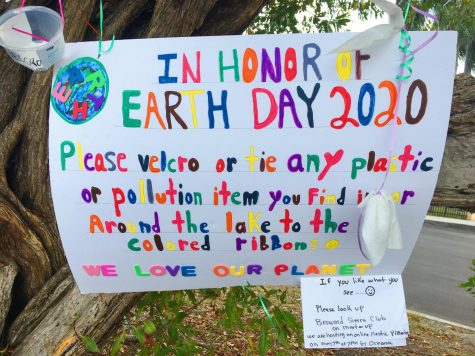 EARTH
IN HONOR OF
EARTH DAY 2020
Please velcro or tie any plastic
or pollution item you find in or
Around the lake to the
colored ribbons
WE LOVE OUR PLANET
If you like what you
see ....
Please look up
Broward Sierra Club
on meet up
we are hosting an online Plastic
by Oceana